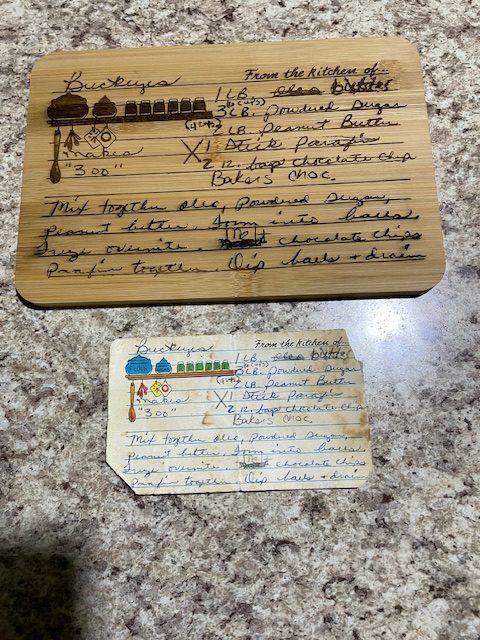 Buckeyes From the kitchen of...
1 LB. oleo butter
(6 cups)
3 LB. Powdered Sugar
(4 cups)
2 LB. Peanut Butter
makes X 1 Stick Parafin
"300" 2 12. bags chocolate chip
Bakers Choc.
Mix together oleo, powdered sugar,
peanut butter. Form into balls.
overnite. Melt chocolate chips
Parafin together. Dip balls & drain
Buckeyes From the kitchen of...
1 LB. oleo butter
FLOUR
(6 cups)
3 LB. Powdered Sugar
(4 cups)
2 LB. Peanut Butter
makes X 1 Stick Parafin
"300" 2 12. bags chocolate chip
Bakers Choc.
Mix together oleo, powdered sugar,
peanut butter. Form into balls.
overnite. Melt chocolate chips
Parafin together. Dip balls & drain